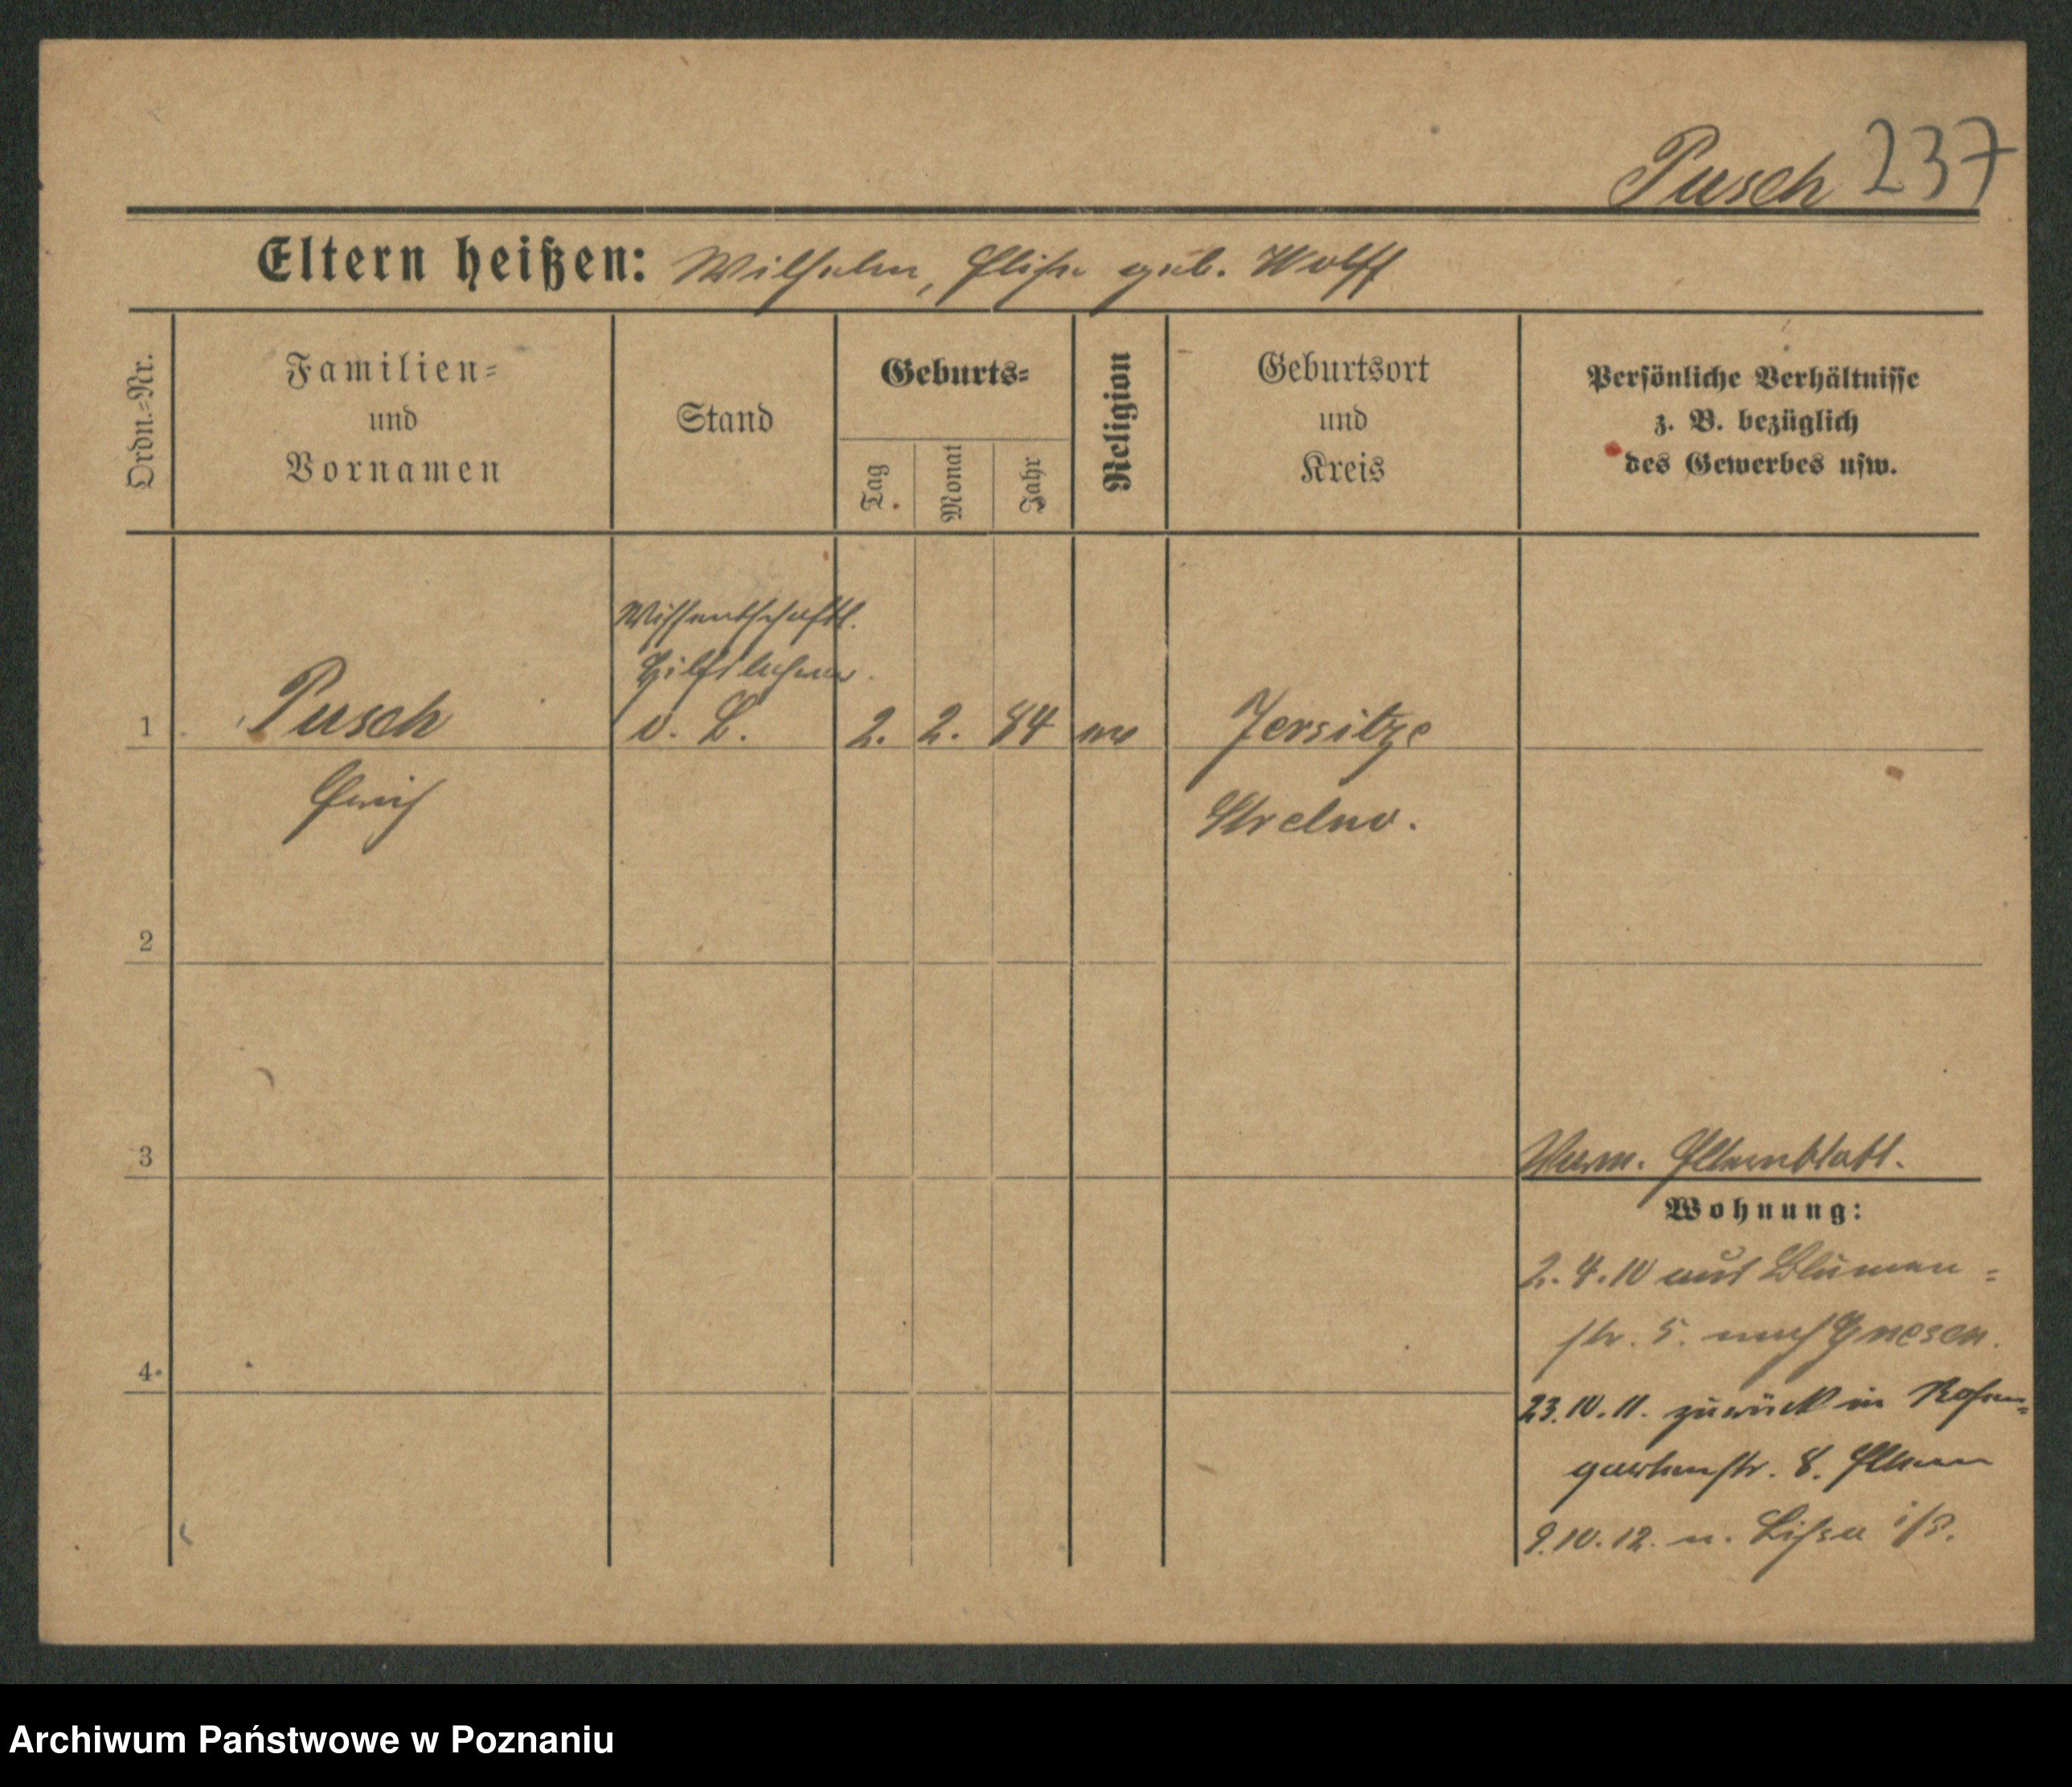 Pusch 237
Eltern heißen: Wilhelm, Elise geb. Wolff
Ordn.-Nr.
Familien-
und
Vornamen
Stand
Geburts-
Tag
Monat
Jahr
Religion
Geburtsort
und
Kreis
Persönliche Verhältnisse
z. B. bezüglich
des Gewerbes usw.
Wissentschaftl.
Hilfslehrer.
1 Pusch v. L. 2. 2. 84 Jersitze
Erich Strelno.
2
3
Verm. Elternblatt.
Wohnung:
2.4.10 aus Blumen-
str. 5. nach Gnesen.
4
23.10.11. zurück in Rosen-
gartenstr. 8. Eltern
9.10.12. n. Lissa i/P.
Archiwum Państwowe w Poznaniu